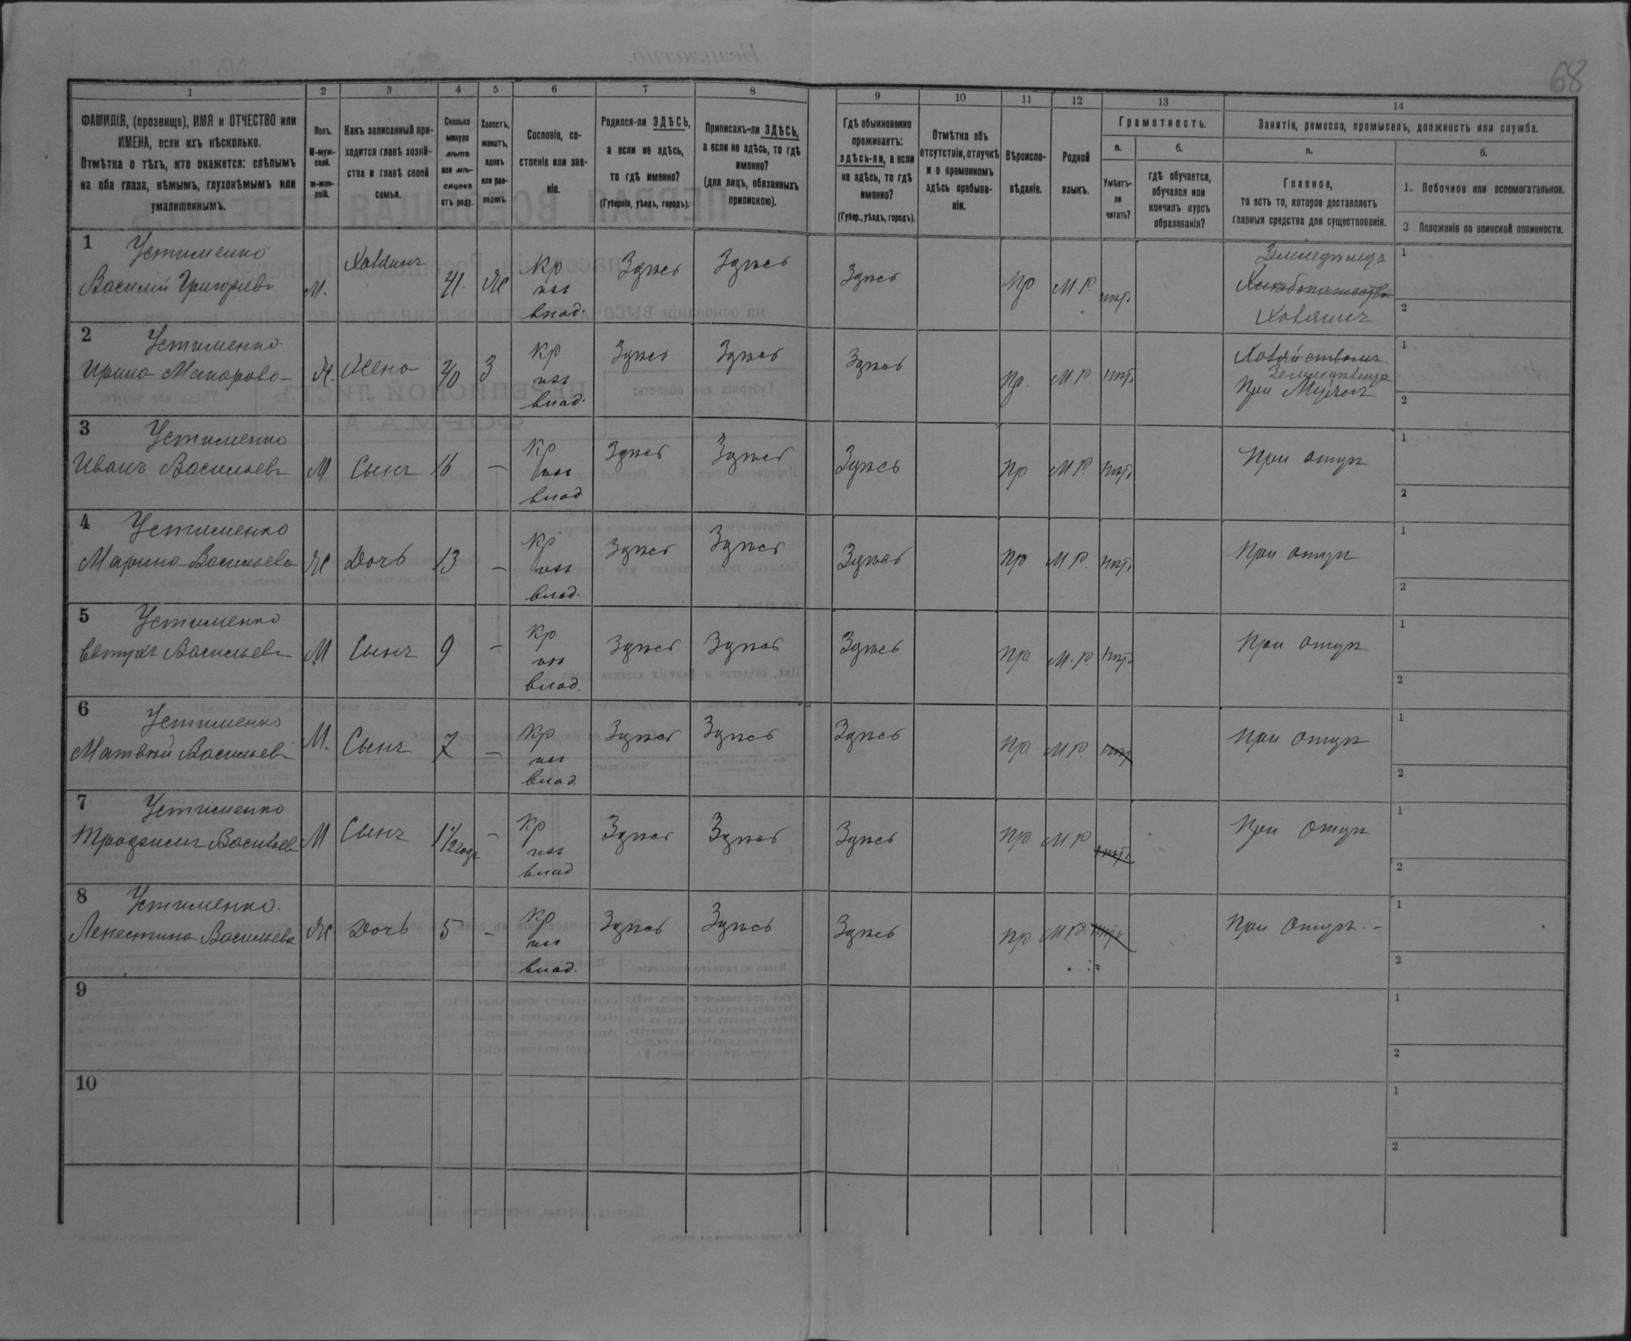 68
1 2 3 4 5 6 7 8 9 10 11 12 13 14
ФАМИЛІЯ, (прозвище), ИМЯ и ОТЧЕСТВО или
ИМЕНА, если ихъ нѣсколько.
Отмѣтка о тѣхъ, кто окажется: слѣпымъ
на оба глаза, нѣмымъ, глухонѣмымъ или
умалишеннымъ.
Полъ.
М-муж-
ской.
ж-жен-
скій.
Какъ записанный при-
ходится главѣ хозяй-
ства и главѣ своей
семьи.
Сколько
минуло
лѣтъ
или мѣ-
сяцевъ
отъ роду.
Холостъ,
женатъ,
вдовъ
или раз-
веденъ.
Сословіе, со-
стояніе или зва-
ніе.
Родился-ли ЗДѢСЬ,
а если не здѣсь,
то гдѣ именно?
(Губернія, уѣздъ, городъ).
Приписанъ-ли ЗДѢСЬ,
а если не здѣсь, то гдѣ
именно?
(для лицъ, обязанныхъ
припискою).
Гдѣ обыкновенно
проживаетъ:
здѣсь-ли, а если
не здѣсь, то гдѣ
именно?
(Губер., уѣздъ, городъ).
Отмѣтка объ
отсутствіи, отлучкѣ
и о временномъ
здѣсь пребыва-
ніи.
Вѣроиспо-
вѣданіе.
Родной
языкъ.
Грамотность.
а.
Умѣетъ-
ли
читать?
б.
гдѣ обучается,
обучался или
кончилъ курсъ
образованія?
Занятіе, ремесло, промыселъ, должность или служба.
а.
Главное,
то есть то, которое доставляетъ
главныя средства для существованія.
б.
1. Побочное или вспомогательное.
2 Положеніе по воинской повинности.
1 Устименко
Василій Григорьевъ
М.
Хозяинъ
41.
Ж
Кр
соб
влад.
Здѣсь
Здѣсь
Здѣсь
Пр
М Р
нѣтъ
Земледѣлецъ
Хлѣбопашество
Хозяинъ
1
2
2 Устименко
Ирина Макарова
Ж.
Жена
40
З
Кр
соб
влад.
Здѣсь
Здѣсь
Здѣсь
Пр.
М Р.
нѣтъ
Земледѣлецъ
При Мужѣ
1
2
3 Устименко
Иванъ Васильевъ
М
Сынъ
16
—
Кр
соб
влад
Здѣсь
Здѣсь
Здѣсь
Пр
М Р.
нѣтъ
При отцѣ
1
2
4 Устименко
Марина Васильева
Ж
Дочь
13
—
Кр
соб
влад.
Здѣсь
Здѣсь
Здѣсь
Пр
М Р.
нѣтъ
При отцѣ
1
2
5 Устименко
Васильевъ
М
Сынъ
9
—
Кр
соб
влад.
Здѣсь
Здѣсь
Здѣсь
Пр.
М. Р.
нѣтъ
При отцѣ
1
2
6 Устименко
Матвѣй Васильевъ
М.
Сынъ
7
—
Кр
соб
влад.
Здѣсь
Здѣсь
Здѣсь
Пр.
М Р.
нѣтъ
При отцѣ
1
2
7 Устименко
Васильевъ
М
Сынъ
1½ года
—
Кр
соб
влад
Здѣсь
Здѣсь
Здѣсь
Пр
М Р
нѣтъ
При отцѣ
1
2
8 Устименко.
Васильева
Ж
Дочь
5
—
Кр
соб
влад.
Здѣсь
Здѣсь
Здѣсь
Пр
М Р.
нѣтъ
При Отцѣ. –
1
2
9
1
2
10
1
2